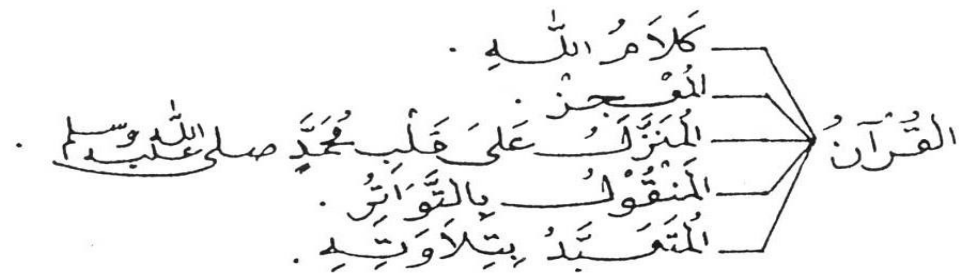 القُرْآنُ
كَلَامُ اللّٰهِ .
المُعْجِزْ .
المُنَزَّلُ عَلَى قَلْبِ مُحَمَّدٍ صلى اللّٰه عليه وسلم .
المَنْقُوْلُ بِالتَّوَاتُرِ .
المُتَعَبَّدُ بِتِلَاوَتِهِ .